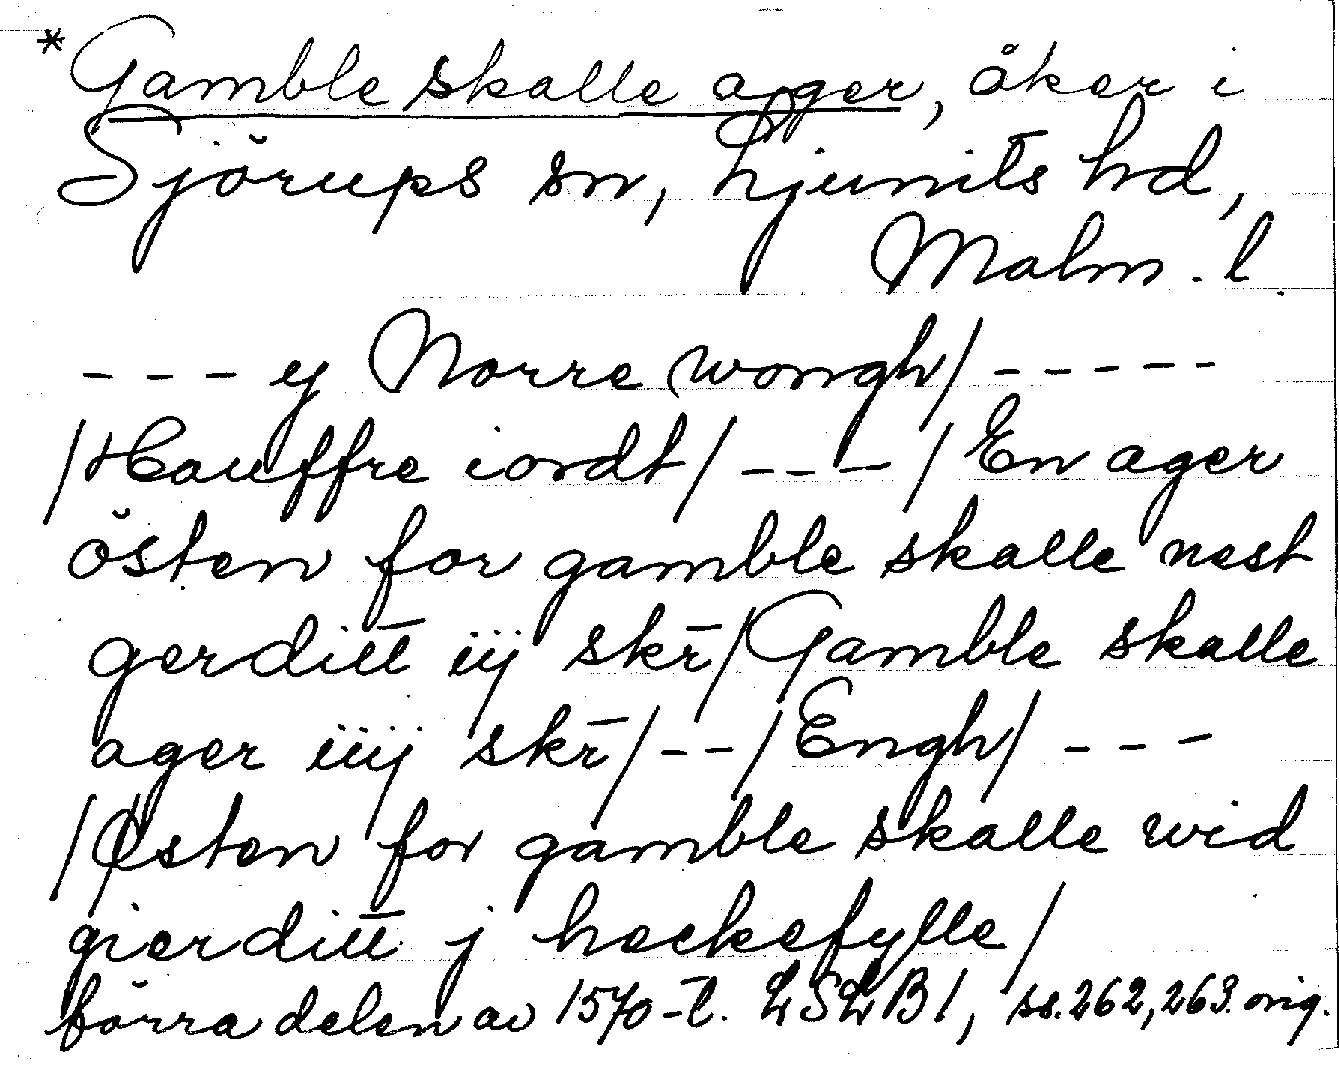 *Gamble skalle ager, åker i
Sjörups sn, Ljunits hd,
Malm. l.
--- ij Norre wongh/ -----
/Hauffre iordt/ --- /En ager
östen for gamble skalle nest
gerditt iij skr̄/Gamble skalle
ager iiij skr̄/--/Engh/ ---
/Østen for gamble skalle wid
gierditt j heckefylle/
förra delen av 1570-t. LSLB1, ss. 262, 263. orig.